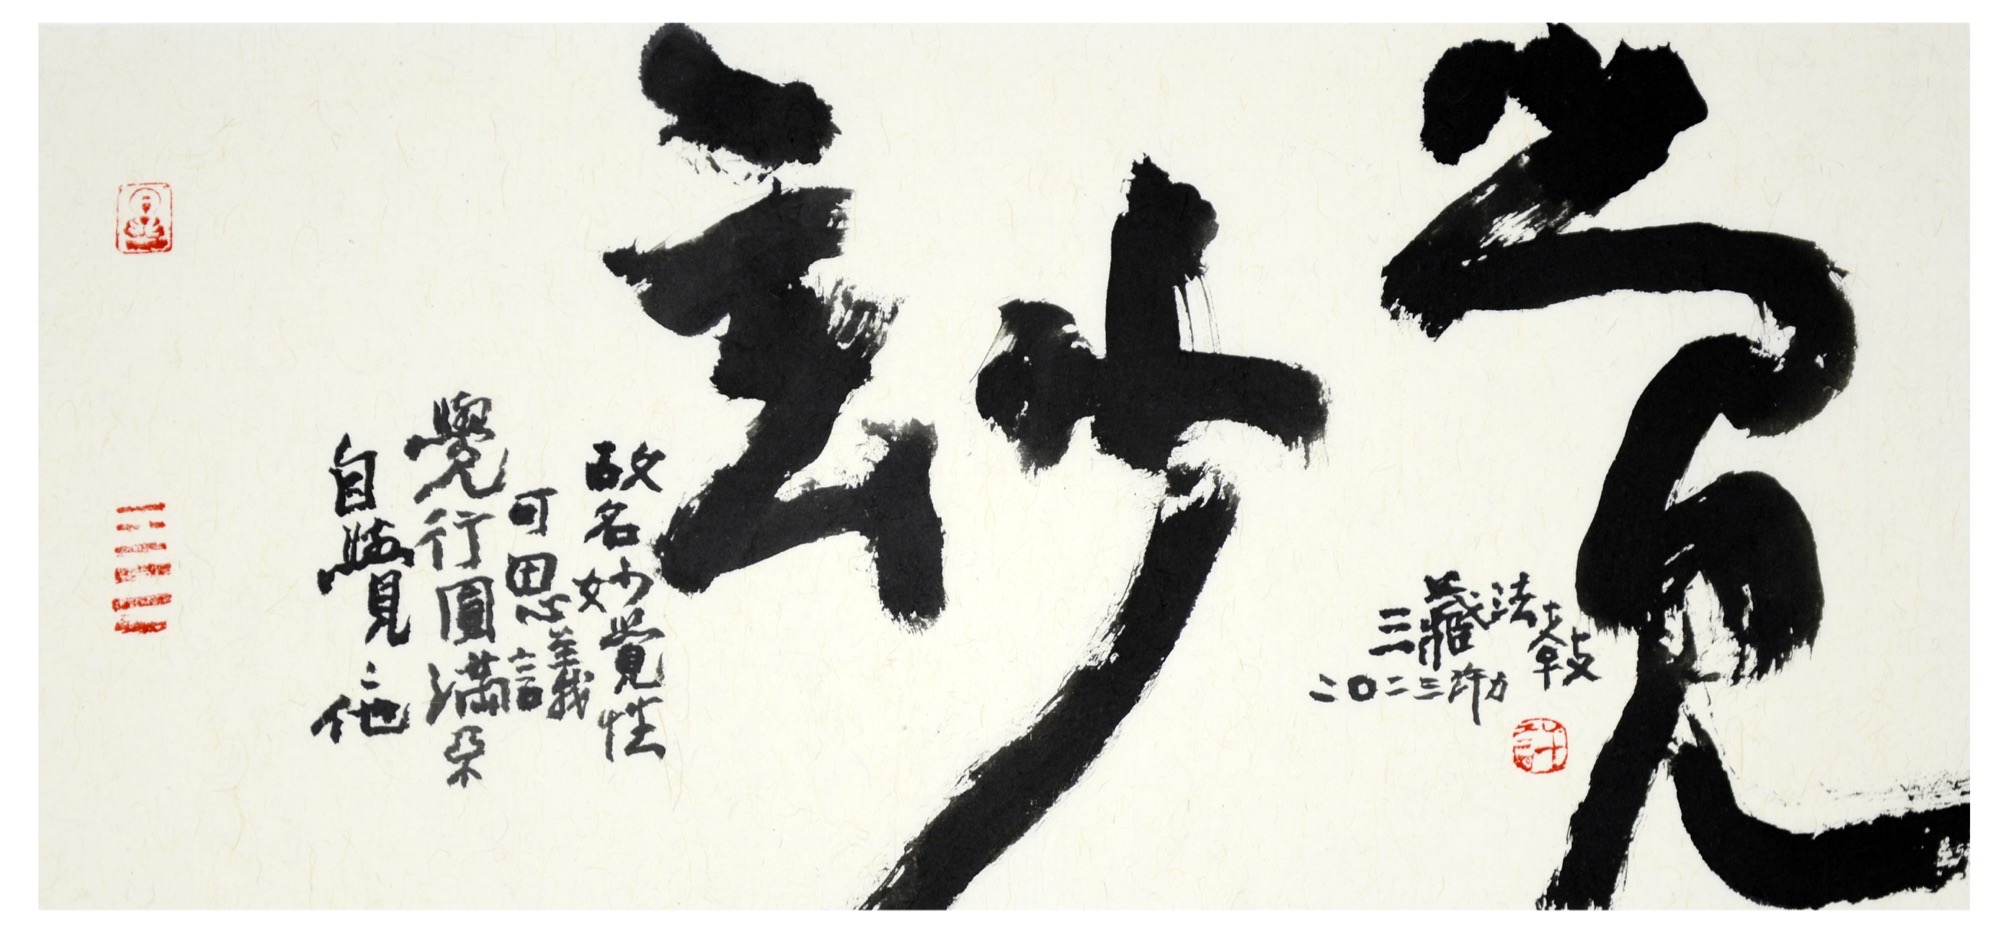 玅覺
自覺〻他
覺行圓滿
可思議
故名妙覺性
三藏法鼓
二〇二三許力